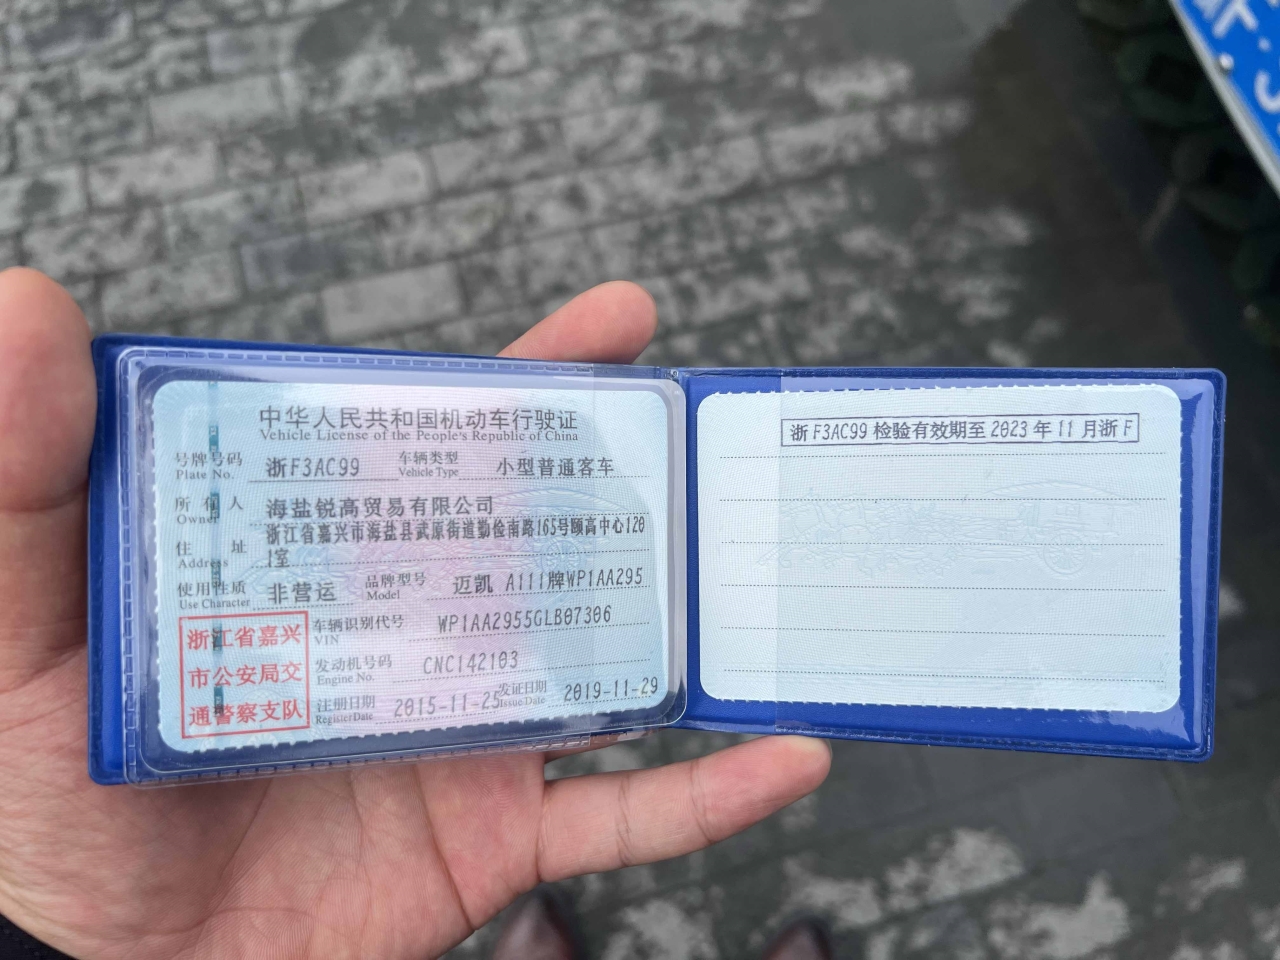 中华人民共和国机动车行驶证
Vehicle License of the People's Republic of China
号牌号码 浙F3AC99 车辆类型 小型普通客车
Plate No. Vehicle Type
所有人 海盐锐高贸易有限公司
Owner
住址 浙江省嘉兴市海盐县武原街道勤俭南路165号颐高中心120
Address 1室
使用性质 非营运 品牌型号 迈凯 A111牌WP1AA295
Use Character Model
浙江省嘉兴
市公安局交
通警察支队
车辆识别代号 WP1AA2955GLB07306
VIN
发动机号码 CNC142103
Engine No.
注册日期 2015-11-25 发证日期 2019-11-29
Register Date Issue Date
浙F3AC99 检验有效期至 2023 年 11 月浙 F